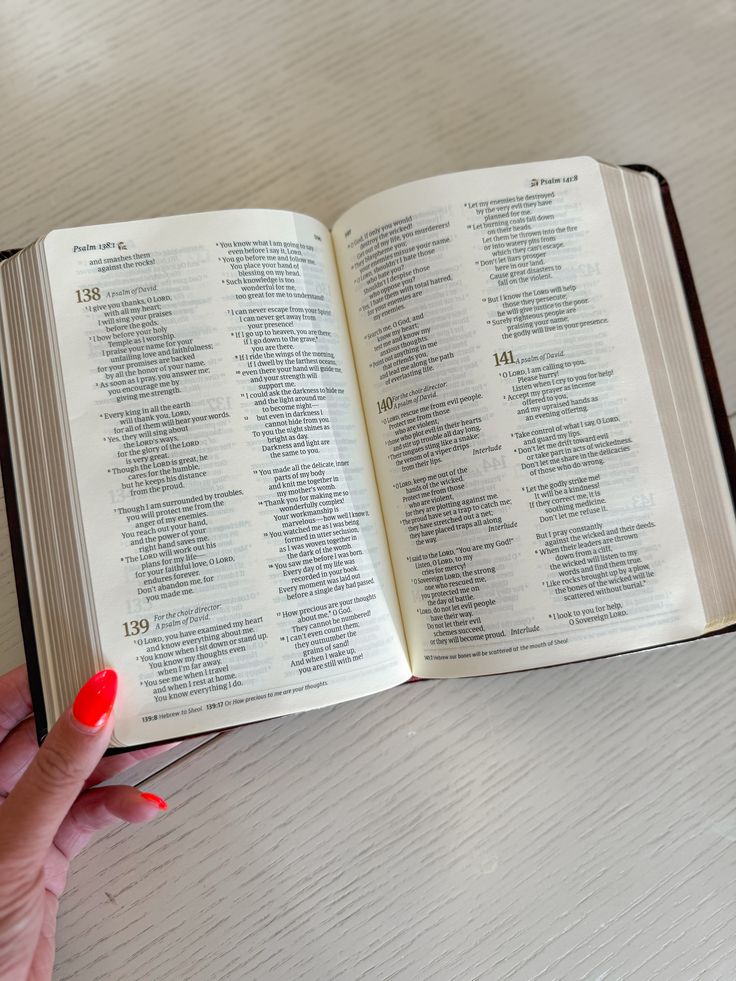 Psalm 138:1
and smashes them
against the rocks!
138 A psalm of David.
¹ I give you thanks, O LORD,
with all my heart;
I will sing your praises
before the gods.
² I bow before your holy
Temple as I worship.
I praise your name for your
unfailing love and faithfulness;
for your promises are backed
by all the honor of your name.
³ As soon as I pray, you answer me;
you encourage me by
giving me strength.
⁴ Every king in all the earth
will thank you, LORD,
for all of them will hear your words.
⁵ Yes, they will sing about
the LORD's ways,
for the glory of the LORD
is very great.
⁶ Though the LORD is great, he
cares for the humble,
but he keeps his distance
from the proud.
⁷ Though I am surrounded by troubles,
you will protect me from the
anger of my enemies.
You reach out your hand,
and the power of your
right hand saves me.
⁸ The LORD will work out his
plans for my life—
for your faithful love, O LORD,
endures forever.
Don't abandon me, for
you made me.
139 For the choir director:
A psalm of David.
¹ O LORD, you have examined my heart
and know everything about me.
² You know when I sit down or stand up.
You know my thoughts even
when I'm far away.
³ You see me when I travel
and when I rest at home.
You know everything I do.
⁴ You know what I am going to say
even before I say it, LORD.
⁵ You go before me and follow me.
You place your hand of
blessing on my head.
⁶ Such knowledge is too
wonderful for me,
too great for me to understand!
⁷ I can never escape from your Spirit!
I can never get away from
your presence!
⁸ If I go up to heaven, you are there;
if I go down to the grave,*
you are there.
⁹ If I ride the wings of the morning,
if I dwell by the farthest oceans,
¹⁰ even there your hand will guide me,
and your strength will
support me.
¹¹ I could ask the darkness to hide me
and the light around me
to become night—
¹² but even in darkness I
cannot hide from you.
To you the night shines as
bright as day.
Darkness and light are
the same to you.
¹³ You made all the delicate, inner
parts of my body
and knit me together in
my mother's womb.
¹⁴ Thank you for making me so
wonderfully complex!
Your workmanship is
marvelous—how well I know it.
¹⁵ You watched me as I was being
formed in utter seclusion,
as I was woven together in
the dark of the womb.
¹⁶ You saw me before I was born.
Every day of my life was
recorded in your book.
Every moment was laid out
before a single day had passed.
¹⁷ How precious are your thoughts
about me,* O God.
They cannot be numbered!
¹⁸ I can't even count them;
they outnumber the
grains of sand!
And when I wake up,
you are still with me!
139:8 Hebrew to Sheol. 139:17 Or How precious to me are your thoughts.
Psalm 141:8
¹⁹ O God, if only you would
destroy the wicked!
Get out of my life, you murderers!
²⁰ They blaspheme you;
your enemies misuse your name.
²¹ O LORD, shouldn't I hate those
who hate you?
Shouldn't I despise those
who oppose you?
²² Yes, I hate them with total hatred,
for your enemies are
my enemies.
²³ Search me, O God, and
know my heart;
test me and know my
anxious thoughts.
²⁴ Point out anything in me
that offends you,
and lead me along the path
of everlasting life.
140 For the choir director:
A psalm of David.
¹ O LORD, rescue me from evil people.
Protect me from those
who are violent,
² those who plot evil in their hearts
and stir up trouble all day long.
³ Their tongues sting like a snake;
the venom of a viper drips
from their lips. Interlude
⁴ O LORD, keep me out of the
hands of the wicked.
Protect me from those
who are violent,
for they are plotting against me.
⁵ The proud have set a trap to catch me;
they have stretched out a net;
they have placed traps all along
the way. Interlude
⁶ I said to the LORD, "You are my God!"
Listen, O LORD, to my
cries for mercy!
⁷ O Sovereign LORD, the strong
one who rescued me,
you protected me on
the day of battle.
⁸ LORD, do not let evil people
have their way.
Do not let their evil
schemes succeed,
or they will become proud. Interlude
⁹ Let my enemies be destroyed
by the very evil they have
planned for me.
¹⁰ Let burning coals fall down
on their heads.
Let them be thrown into the fire
or into watery pits from
which they can't escape.
¹¹ Don't let liars prosper
here in our land.
Cause great disasters to
fall on the violent.
¹² But I know the LORD will help
those they persecute;
he will give justice to the poor.
¹³ Surely righteous people are
praising your name;
the godly will live in your presence.
141 A psalm of David.
¹ O LORD, I am calling to you.
Please hurry!
Listen when I cry to you for help!
² Accept my prayer as incense
offered to you,
and my upraised hands as
an evening offering.
³ Take control of what I say, O LORD,
and guard my lips.
⁴ Don't let me drift toward evil
or take part in acts of wickedness.
Don't let me share in the delicacies
of those who do wrong.
⁵ Let the godly strike me!
It will be a kindness!
If they correct me, it is
soothing medicine.
Don't let me refuse it.
But I pray constantly
against the wicked and their deeds.
⁶ When their leaders are thrown
down from a cliff,
the wicked will listen to my
words and find them true.
⁷ Like rocks brought up by a plow,
the bones of the wicked will lie
scattered without burial.*
⁸ I look to you for help,
O Sovereign LORD.
141:7 Hebrew our bones will be scattered at the mouth of Sheol.